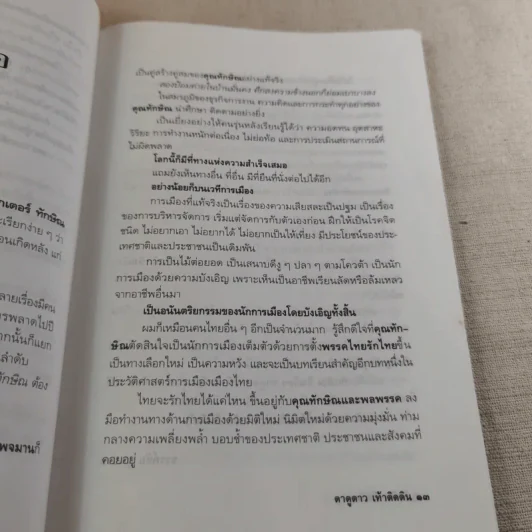 อ
กเตอร์ ทักษิณ
ะเรียกง่าย ๆ ว่า
อนเกิดหลัง แก่
ลายเรื่องมีคน
ารพลาดไปปี
ากนั้นก็แยก
ลำดับ
กษิณ ต้อง
พจมานก็
เป็นคู่สร้างคู่สมของคุณทักษิณอย่างแท้จริง
ในสมรภูมิของธุรกิจการงาน ความคิดและการกระทำทุกอย่างของ
คุณทักษิณ น่าศึกษา ติดตามอย่างยิ่ง
เป็นเยี่ยงอย่างให้คนรุ่นหลังเรียนรู้ได้ว่า ความอดทน อุตสาหะ
วิริยะ การทำงานหนักต่อเนื่อง ไม่ย่อท้อ และการประเมินสถานการณ์ที่
ไม่ผิดพลาด
โลกนี้ก็มีที่ทางแห่งความสำเร็จเสมอ
แถมยังเห็นทางอื่น ที่อื่น มีที่ยืนที่นั่งต่อไปได้อีก
อย่างน้อยก็บนเวทีการเมือง
การเมืองที่แท้จริงเป็นเรื่องของความเสียสละเป็นปฐม เป็นเรื่อง
ของการบริหารจัดการ เริ่มแต่จัดการกับตัวเองก่อน ฝึกให้เป็นโรคจิต
ชนิด ไม่อยากเอา ไม่อยากได้ ไม่อยากเป็นให้เที่ยง มีประโยชน์ของประ-
เทศชาติและประชาชนเป็นเดิมพัน
การเป็นไม้ต่อยอด เป็นเสนาบดีงู ๆ ปลา ๆ ตามโควต้า เป็นนัก
การเมืองด้วยความบังเอิญ เพราะเห็นเป็นอาชีพเรียนลัดหรือล้มเหลว
จากอาชีพอื่นมา
เป็นอนันตริยกรรมของนักการเมืองโดยบังเอิญทั้งสิ้น
ผมก็เหมือนคนไทยอื่น ๆ อีกเป็นจำนวนมาก รู้สึกดีใจที่คุณทัก-
ษิณตัดสินใจเป็นนักการเมืองเต็มตัวด้วยการตั้งพรรคไทยรักไทยขึ้น
เป็นทางเลือกใหม่ เป็นความหวัง และจะเป็นบทเรียนสำคัญอีกบทหนึ่งใน
ประวัติศาสตร์การเมืองเมืองไทย
ไทยจะรักไทยได้แค่ไหน ขึ้นอยู่กับคุณทักษิณและพลพรรค ลง
มือทำงานทางด้านการเมืองด้วยมิติใหม่ นิมิตใหม่ด้วยความมุ่งมั่น ท่าม
กลางความเพลี่ยงพล้ำ บอบช้ำของประเทศชาติ ประชาชนและสังคมที่
คอยอยู่
ตาดูดาว เท้าติดดิน ๑๓